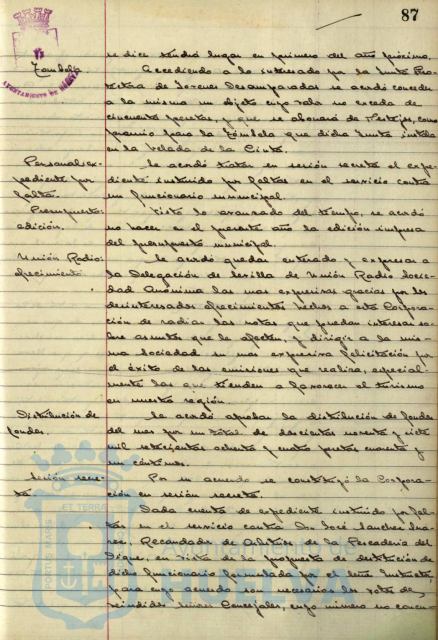 87
se dice tendrá lugar en primero del año próximo.
Tómbola. Accediendo a lo interesado por la Junta Pro-
tectora de Jovenes Desamparadas se acordó conceder
a la misma un objeto cuyo valor no exceda de
cincuenta pesetas, y que se abonará de Festejos, como
premio para la Tómbola que dicha Junta instala
en la Velada de la Cinta.
Personal ex- Se acordó tratar en sesión secreta el expe-
pediente por diente instruido por faltas en el servicio contra
faltas. un funcionario municipal.
Presupuesto: Visto lo avanzado del tiempo, se acordó
edición. no hacer en el presente año la edición impresa
del presupuesto municipal.
Unión Radio: Se acordó quedar enterado y expresar a
ofrecimiento la Delegación de Sevilla de Unión Radio Socie-
dad Anónima las mas expresivas gracias por los
desinteresados ofrecimientos hechos a esta Corpora-
ción de radiar las notas que puedan interesar so-
bre asuntos que le afecten, y dirigir a la mis-
ma Sociedad su mas expresiva felicitación por
el éxito de las emisiones que realiza, especial-
mente las que tienden a favorecer el turismo
en nuestra región.
Distribución de Se acordó aprobar la distribución de fondos
fondos. del mes por un total de doscientas noventa y siete
mil setecientas ochenta y cuatro pesetas cuarenta y
un céntimos.
Sesión secre- Por su acuerdo se constituyó la Corpora-
ta. ción en sesión secreta.
Dada cuenta de expediente instruido por fal-
tas en el servicio contra Don José Sanchez
Recaudador de Arbitrios de la Pescadería del
Dique, en vista de la propuesta de destitución de
dicho funcionario formulada por el Juez Instructor,
para cuyo acuerdo son necesarios los votos de
señores Concejales, cuyo número no concu-
AYUNTAMIENTO DE HUELVA
PORTUS MARIS ET TERRAE
Ayuntamiento de
HUELVA